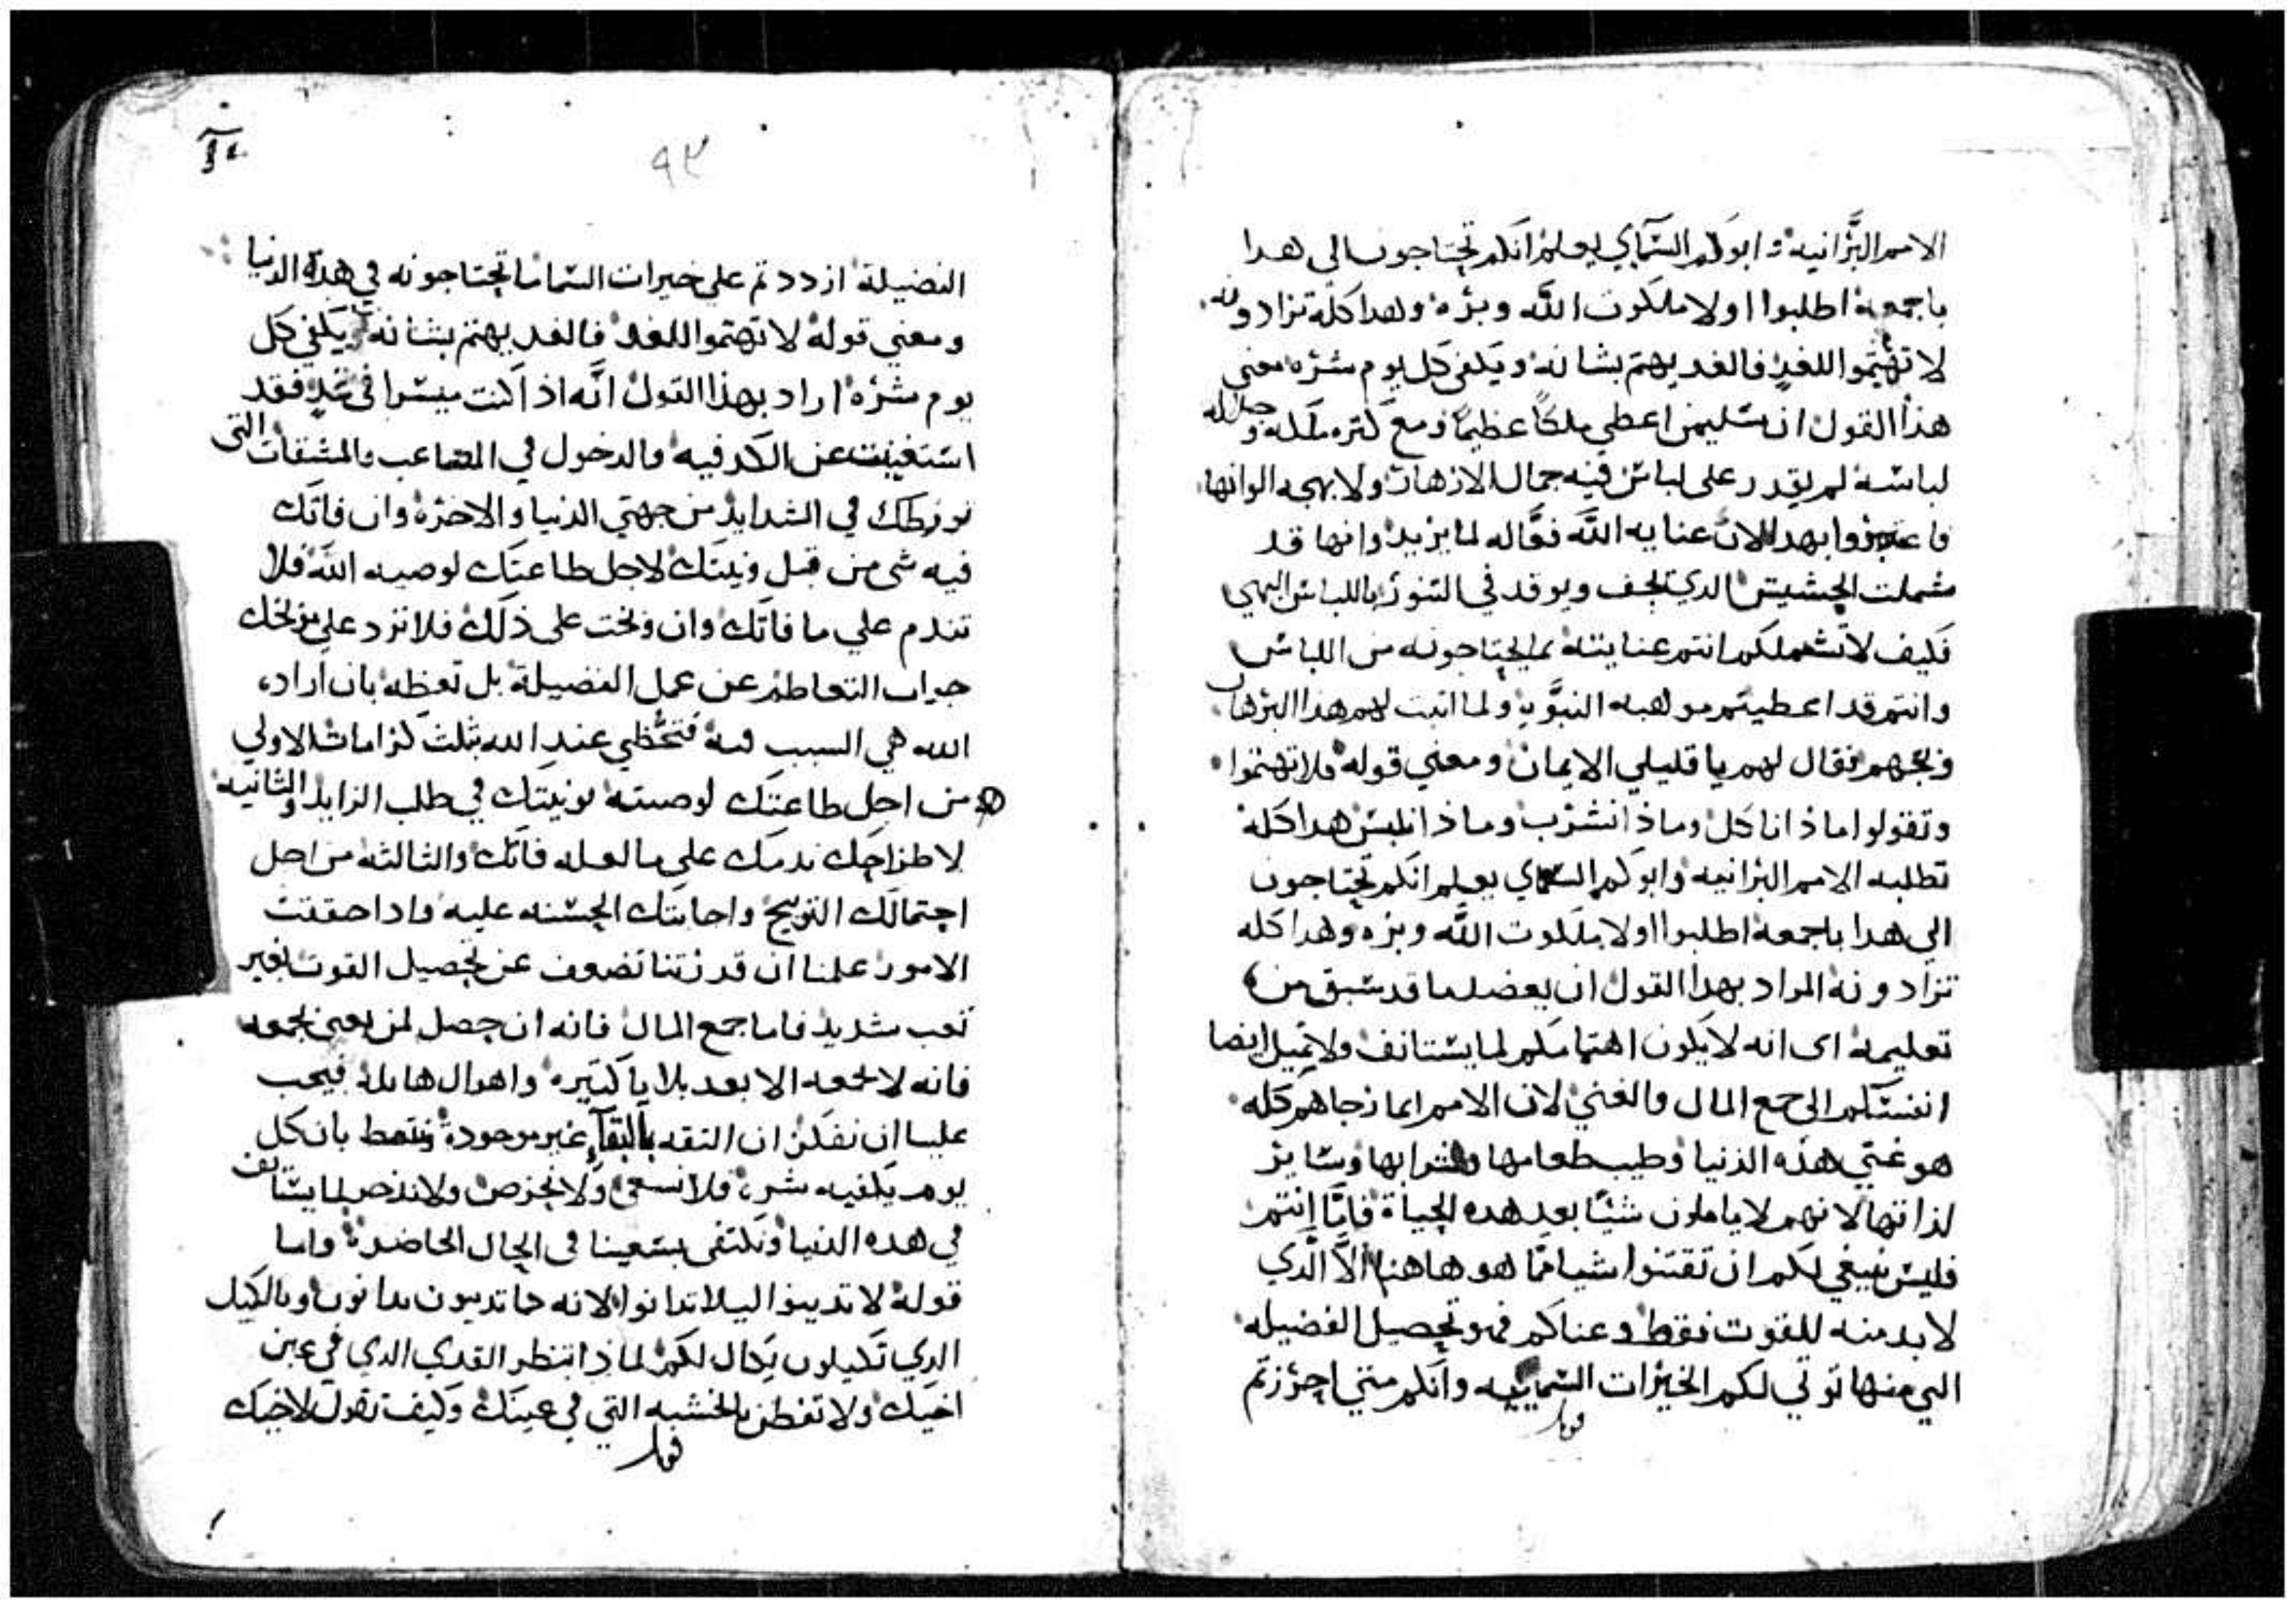 الامم البرانيه وابوكم السماي يعلم انكم تحتاجون الى هدا
باجمعه اطلبوا اولا ملكوت الله وبره وهدا كله تزادونه
لا تهتموا للغد فالغد يهتم بشانه ويكفى كل يوم شره معنى
هذا القول ان سليمن اعطي ملكا عظيما ومع كتره ملكه وجلاله
لباسه لم يقدر على لباس فيه جمال الازهار ولا بهجه الوانها
فاعتبروا بهدا الان عنايه الله فعاله لما يريد وانها قد
شملت الحشيش الدي يجف ويوقد في التنور باللباس البهي
فكيف لا تشملكم انتم عنايته بما تحتاجونه من اللباس
وانتم قد اعطيتم مواهبه النبويه ولما اتبت لهم هدا البرهان
وبخهم فقال لهم يا قليلي الايمان ومعني قوله فلا تهتموا
وتقولوا ماذا ناكل وماذا نشرب وماذا نلبس هدا كله
تطلبه الامم البرانيه وابوكم السماي يعلم انكم تحتاجون
الى هدا باجمعه اطلبوا اولا ملكوت الله وبره وهدا كله
تزادونه المراد بهدا القول ان يعضد ما قد سبق من
تعليمه اى انه لا يكون اهتمامكم لما يستانف ولا تميل ايضا
انفسكم الى جمع المال والغنى لان الامم انما رجاهم كله
هو غني هذه الدنيا وطيب طعامها وشرابها وساير
لذاتها لانهم لا ياملون شيئا بعد هده الحياة فاما انتم
فليس ينبغي لكم ان تقتنوا شيا مما هو هاهنا الا الدي
لا بد منه للقوت فقط وعناكم فهو تحصيل الفضيله
التي منها توتي لكم الخيرات السماييه وانكم متي احرزتم
٩٣
الفضيلة ازددتم على خيرات السما ما تحتاجونه في هده الدنيا
ومعني قوله لا تهتموا للغد فالغد يهتم بشانه ويكفي كل
يوم شره اراد بهذا القول انه اذا كنت ميسرا في غد فقد
استغنيت عن الكد فيه والدخول في المصاعب والمشقات التي
تورطك في الشدايد من جهتي الدنيا والاخره وان فاتك
فيه شى من قبل ونيتك لاجل طاعتك لوصيه الله فلا
تندم علي ما فاتك وان وبخت على ذلك فلا ترد على موبخك
جواب التعاطم عن عمل الفضيلة بل تعظه بان اراده
الله هي السبب فيه فتحظي عند الله بثلث كرامات الاولي
من اجل طاعتك لوصيته بونيتك في طلب الزايد والثانيه
لاطراحك ندمك على ما لعله فاتك والثالثه من اجل
احتمالك التوبيخ واجابتك الحسنه عليه وادا حققت
الامور علمنا ان قدرتنا تضعف عن تحصيل القوت بغير
تعب شديد فاما جمع المال فانه ان حصل لمن يعنى بجمعه
فانه لا يجمعه الا بعد بلايا كتيره واهوال هايله فيجب
علينا ان نفكر ان التقه بالبقآ غير موجودة ونتعظ بان كل
يوم يكفيه شره فلا نسعى ولا نحرص ولا ندخر لما يستانف
في هده الدنيا ونكتفى بسعينا في الحال الحاضره واما
قوله لا تدينوا ليلا تدانوا لانه كما تدينون تدانون وبالكيل
الدي تكيلون يكال لكم لماذا تنظر القدي الدي في عين
اخيك ولا تفطن بالخشبه التي في عينك وكيف تقول لاخيك